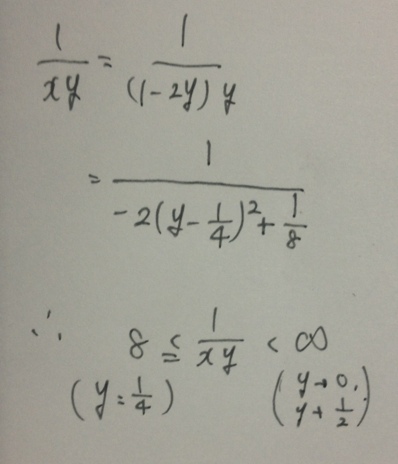 1/(xy) = 1/((1-2y)y)
= 1/(-2(y-1/4)²+1/8)
∴ 8 ≤ 1/(xy) < ∞
(y=1/4) (y→0,
y→1/2)